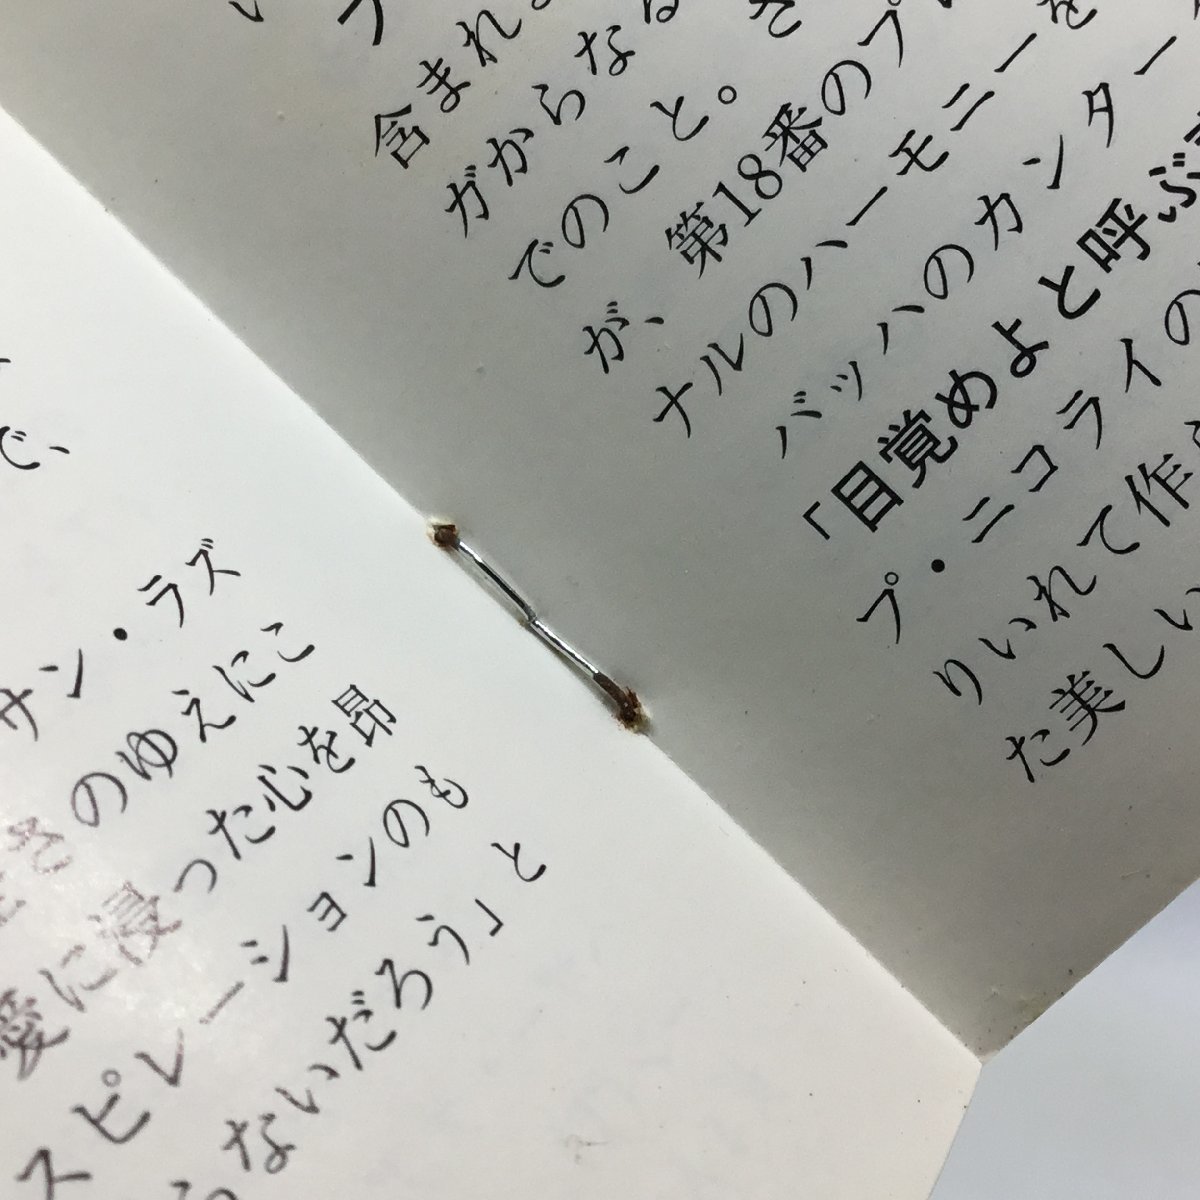 含まれ
ガからな
でのこと。
が、第18番のプ
ナルのハーモニーを
バッハのカンター
「目覚めよと呼ぶ
プ・ニコライの
りいれて作
た美しい
で、
サン・ラズ
さのゆえにこ
愛に浸った心を昂
スピレーションのも
ないだろう」と